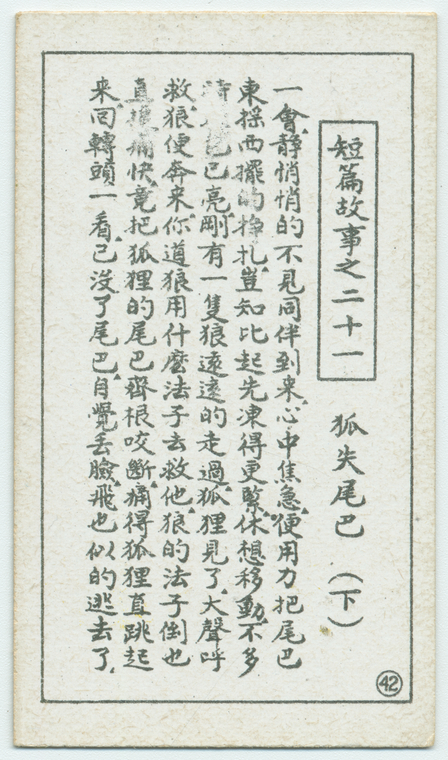 短篇故事之二十一 狐失尾巴 (下)
一會静悄悄的不見同伴到來心中焦急便用力把尾巴
東採西擺的掙扎豈知比起先凍得更緊休想移動不多
時 巴已亮剛有一隻狼遠遠的走過狐狸見了大聲呼
救狼便奔來你道狼用什麽法子去救他狼的法子倒也
直 痛快竟把狐狸的尾巴齊根咬斷痛得狐狸直跳起
來回轉頭一看已没了尾巴自覺丢臉飛也似的逃去了
42